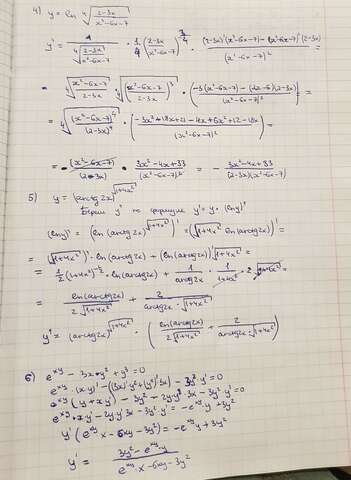 4) y = ln ∜((2-3x)/(x²-6x-7))
y' = 1/∜((2-3x)/(x²-6x-7)) · 1/4 ((2-3x)/(x²-6x-7)) · ((2-3x)'(x²-6x-7) - (x²-6x-7)'(2-3x))/(x²-6x-7)² =
= ∜((x²-6x-7)/(2-3x)) · ∜((x²-6x-7)/(2-3x))³ · (-3(x²-6x-7) - (2x-6)(2-3x))/(x²-6x-7)² =
= ∜((x²-6x-7)⁴/(2-3x)⁴) · (-3x²+18x+21-4x+6x²+12-18x)/(x²-6x-7)² =
= (x²-6x-7)/(2-3x) · (3x²-4x+33)/(x²-6x-7)² = - (3x²-4x+33)/((2-3x)(x²-6x-7))
5) y = (arctg2x)^√(1+4x²)
Берём y' по формуле y' = y · (ln y)'
(ln y)' = (ln (arctg2x)^√(1+4x²))' = (√(1+4x²) ln(arctg2x))' =
= (√(1+4x²))' · ln(arctg2x) + (ln(arctg2x))' √(1+4x²) =
= 1/2 (1+4x²)^(-1/2) · ln(arctg2x) + 1/arctg2x · 1/(1+4x²) · 2 √(1+4x²) =
= ln(arctg2x)/(2√(1+4x²)) + 2/(arctg2x · √(1+4x²))
y' = (arctg2x)^√(1+4x²) · (ln(arctg2x)/(2√(1+4x²)) + 2/(arctg2x · √(1+4x²)))
6) e^xy - 3xy² + y³ = 0
e^xy · (xy)' - ((3x)'y² + (y²)'3x) - 3y² y' = 0
e^xy (y + xy') - 3y² - 2yy' · 3x - 3y² y' = 0
e^xy · xy' - 2yy' 3x - 3y² · y' = -e^xy · y + 3y²
y' (e^xy x - 6xy - 3y²) = -e^xy y + 3y²
y' = (3y² - e^xy · y)/(e^xy x - 6xy - 3y²)